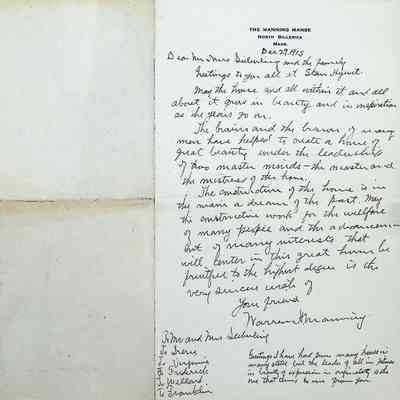 THE MANNING MANSE
NORTH BILLERICA
MASS.
Dec 29, 1915
Dear Mr & Mrs Seiberling and the family
Greetings to you all at Stan Hywet
May the house and all within it and all
about it grow in beauty and in inspiration
as the years go on.
The brains and the brawn of many
men have helped to create a home of
great beauty under the leadership
of two master minds - the master and
the mistress of this home.
The construction of this house is in
the main a dream of the past. May
the constructive work for the wellfare
of many people and the advancement
of many interests that
will center in this great home be
fruitful to the highest degree is the
very sincere wish of
Your friend
Warren H Manning
To Mr and Mrs Seiberling
Irene
Virginia
Frederick
Willard
Franklin
Greetings I have had from many houses in
many states but the leader of all in
in beauty of expression in is the
one that came to me from you